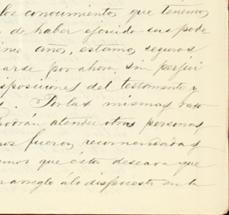 los conocimientos que tenemos
de haber ejercido sus pode
años, estamos seguros
arse por ahora, sin perjui
disposiciones del testamento y
Por las mismas razo
atender otras personas,
fueron recomendadas
que estos deseara que
arreglo á lo dispuesto en la